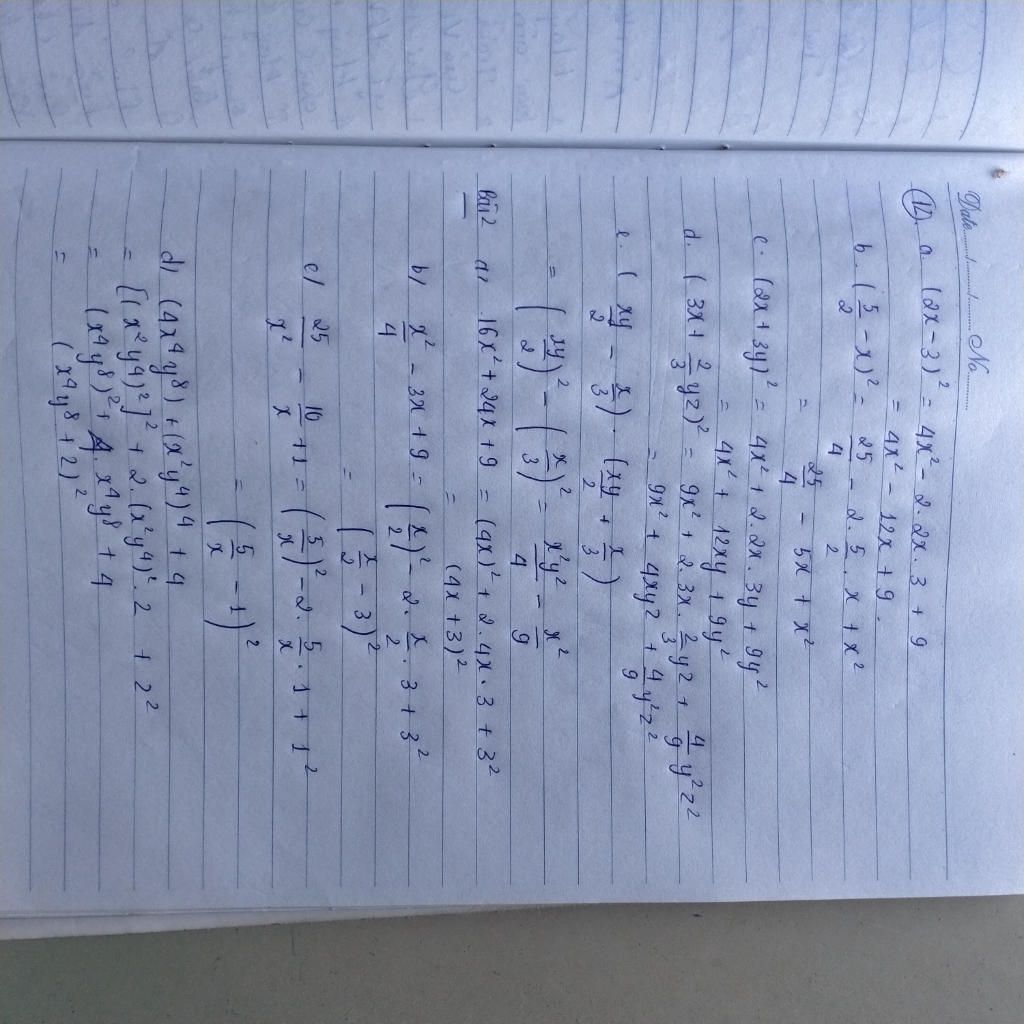 Date....../....../............ No..............
(12). a. (2x - 3)² = 4x² - 2.2x.3 + 9
= 4x² - 12x + 9.
b. (5/2 - x)² = 25/4 - 2.5/2.x + x²
= 25/4 - 5x + x²
c. (2x + 3y)² = 4x² + 2.2x.3y + 9y²
= 4x² + 12xy + 9y²
d. (3x + 2/3 yz)² = 9x² + 2.3x.2/3 yz + 4/9 y²z²
= 9x² + 4xyz + 4/9 y²z²
e. (xy/2 - x/3).(xy/2 + x/3)
= (xy/2)² - (x/3)² = x²y²/4 - x²/9
Bài 2 a) 16x² + 24x + 9 = (4x)² + 2.4x.3 + 3²
= (4x + 3)²
b) x²/4 - 3x + 9 = (x/2)² - 2.x/2.3 + 3²
= (x/2 - 3)²
c) 25/x² - 10/x + 1 = (5/x)² - 2.5/x.1 + 1²
= (5/x - 1)²
d) (4x⁴y⁸) + (x²y⁴)⁴ + 4
= [(x²y⁴)²]² + 2.(x²y⁴)².2 + 2²
= (x⁴y⁸)² + 4.x⁴y⁸ + 4
= (x⁴y⁸ + 2)²